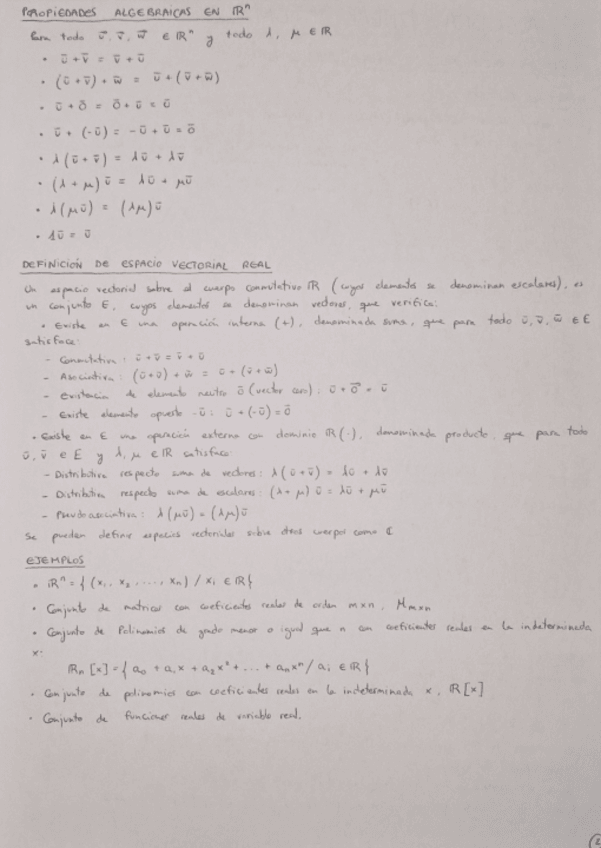 PROPIEDADES ALGEBRAICAS EN ℝⁿ
Para todo ū, v̄, w̄ ∈ ℝⁿ y todo λ, μ ∈ ℝ
• ū + v̄ = v̄ + ū
• (ū + v̄) + w̄ = ū + (v̄ + w̄)
• ū + ō = ō + ū = ū
• ū + (-ū) = -ū + ū = ō
• λ(ū + v̄) = λū + λv̄
• (λ + μ)ū = λū + μū
• λ(μū) = (λμ)ū
• 1ū = ū
DEFINICIÓN DE ESPACIO VECTORIAL REAL
Un espacio vectorial sobre el cuerpo conmutativo ℝ (cuyos elementos se denominan escalares), es
un conjunto E, cuyos elementos se denominan vectores, que verifica:
• Existe en E una operación interna (+), denominada suma, que para todo ū, v̄, w̄ ∈ E
satisface:
- Conmutativa: ū + v̄ = v̄ + ū
- Asociativa: (ū + v̄) + w̄ = ū + (v̄ + w̄)
- Existencia de elemento neutro ō (vector cero): ū + ō = ū
- Existe elemento opuesto -ū: ū + (-ū) = ō
• Existe en E una operación externa con dominio ℝ (·), denominada producto, que para todo
ū, v̄ ∈ E y λ, μ ∈ ℝ satisface:
- Distributiva respecto suma de vectores: λ(ū + v̄) = λū + λv̄
- Distributiva respecto suma de escalares: (λ + μ)ū = λū + μū
- Pseudoasociativa: λ(μū) = (λμ)ū
Se pueden definir espacios vectoriales sobre otros cuerpos como ℂ
EJEMPLOS
• ℝⁿ = { (x₁, x₂, ..., xₙ) / xᵢ ∈ ℝ}
• Conjunto de matrices con coeficientes reales de orden m×n, Mₘₓₙ
• Conjunto de Polinomios de grado menor o igual que n con coeficientes reales en la indeterminada
x:
ℝₙ[x] = { a₀ + a₁x + a₂x² + ... + aₙxⁿ / aᵢ ∈ ℝ}
• Conjunto de polinomios con coeficientes reales en la indeterminada x, ℝ[x]
• Conjunto de funciones reales de variable real.